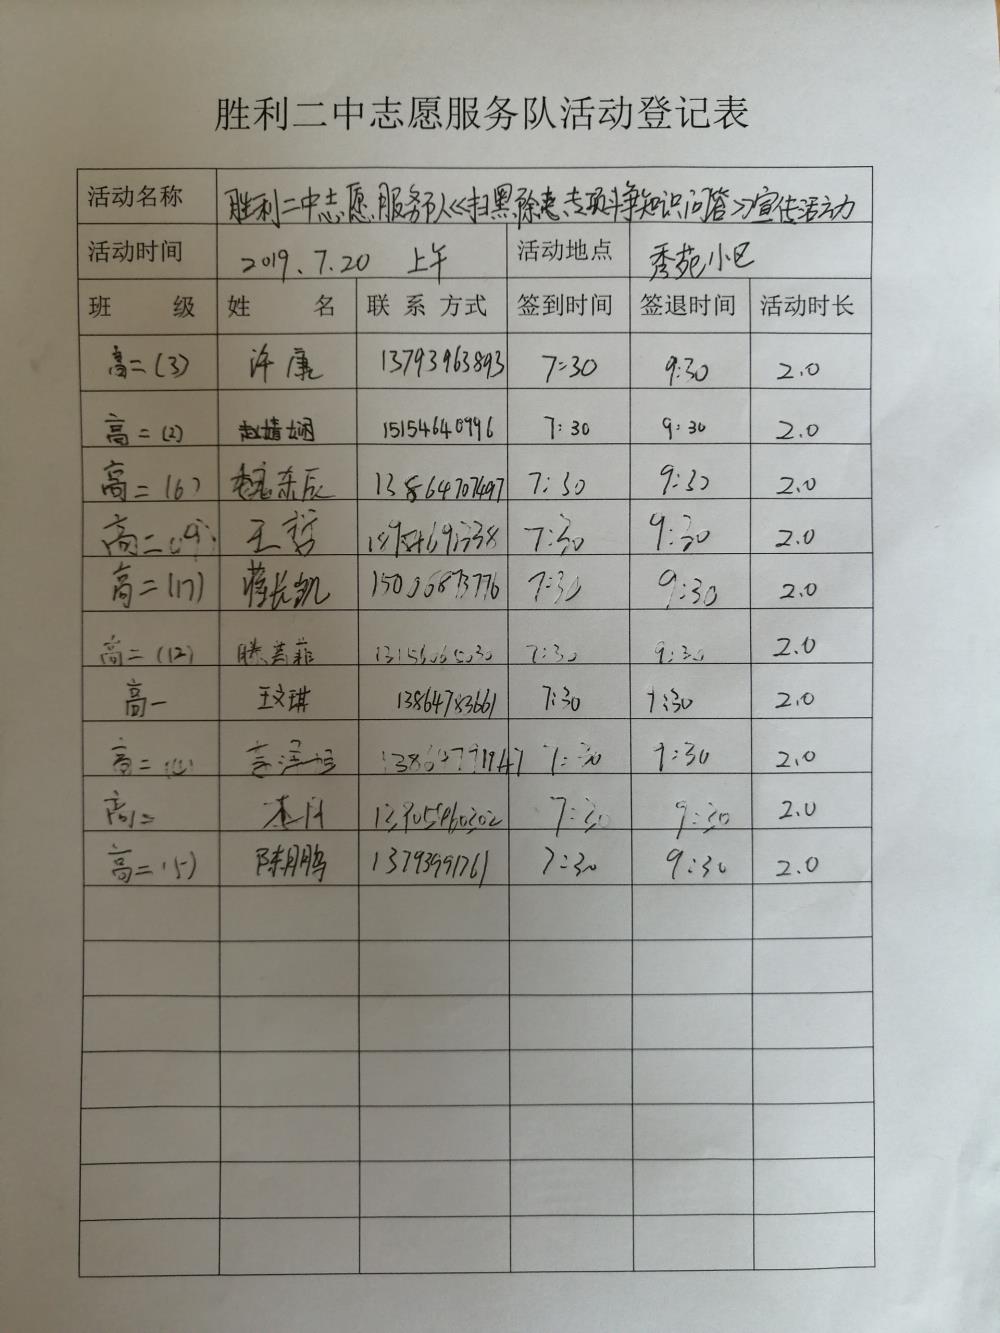 胜利二中志愿服务队活动登记表
活动名称 胜利二中志愿服务队《扫黑除恶专项斗争知识问答》宣传活动
活动时间 2019.7.20 上午 活动地点 秀苑小区
班 级 姓 名 联 系 方式 签到时间 签退时间 活动时长
高二(3) 许康 13793963893 7:30 9:30 2.0
高二(2) 赵婧娴 15154640996 7:30 9:30 2.0
高二(6) 东辰 13864707497 7:30 9:30 2.0
高二 王哲 7:30 9:30 2.0
高二(17) 蒋长凯 15006873776 7:30 9:30 2.0
高二(12) 滕美菲 7:30 9:30 2.0
高一 王文琪 13864783661 7:30 9:30 2.0
高二 7:30 9:30 2.0
高二 7:30 9:30 2.0
高二(5) 陈鹏 13793991761 7:30 9:30 2.0